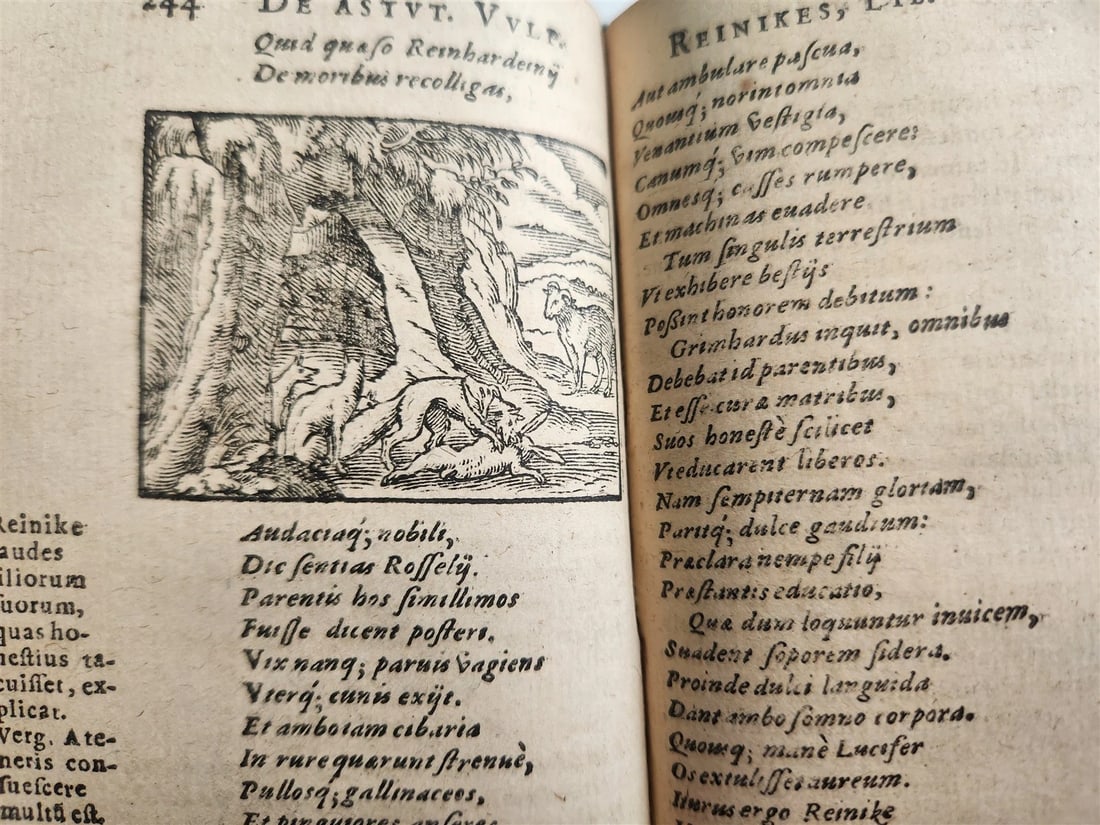 244 DE ASTVT. VVLP.
Quid quæso Reinhardeinÿ
De moribus recolligas,
Reinike
laudes
filiorum
suorum,
quas ho-
nestius ta-
cuisset, ex-
plicat.
Verg. A te-
neris con-
suescere
multũ est.
Audaciaq́; nobili,
Dic sentias Rosselÿ.
Parentis hos simillimos
Fuisse dicent posteri.
Vix nanq; paruis vagiens
Vterq́; cunis exÿt.
Et ambo iam cibaria
In rure quærunt strenuè,
Pullosq́; gallinaceos,
Et pinguiores anseres
REINIKES, LIB.
Aut ambulare pascua,
Quomq́; norint omnia
Venantium vestigia,
Canumq́; vim compescere:
Omnesq́; casses rumpere,
Et machinas euadere
Tum singulis terrestrium
Vt exhibere bestÿs
Poßint honorem debitum:
Grimhardus inquit, omnibus
Debebat id parentibus,
Et esse curæ matribus,
Suos honestè scilicet
Vt educarent liberos.
Nam sempiternam gloriam,
Paritq́; dulce gaudium:
Præclara nempe filÿ
Præstantis educatio,
Quæ dum loquuntur inuicem,
Suadent soporem sidera.
Proinde dulci languida
Dant ambo somno corpora.
Quomq; manè Lucifer
Os extulisset aureum.
Iturus ergo Reinike